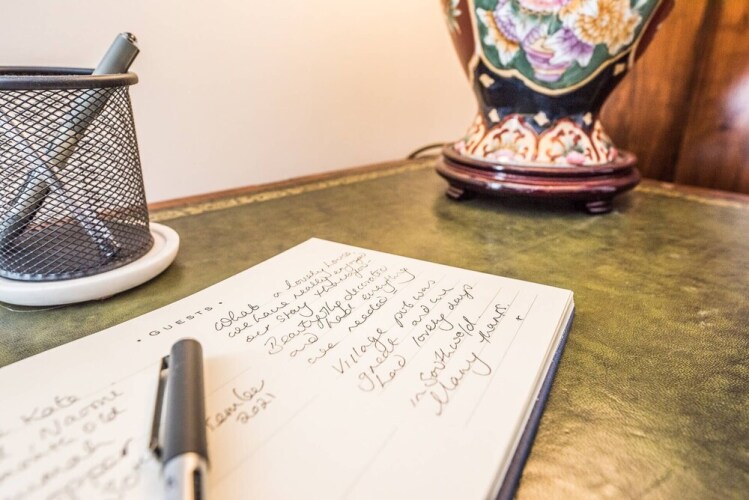 • GUESTS •
What a lovely house
we have really enjoyed
our stay
Beautifully decorated
and had everything
we needed
Village pub was
great and we
had lovely days
in Southwold.
Many thanks.
tember
2021
Kate
Naomi